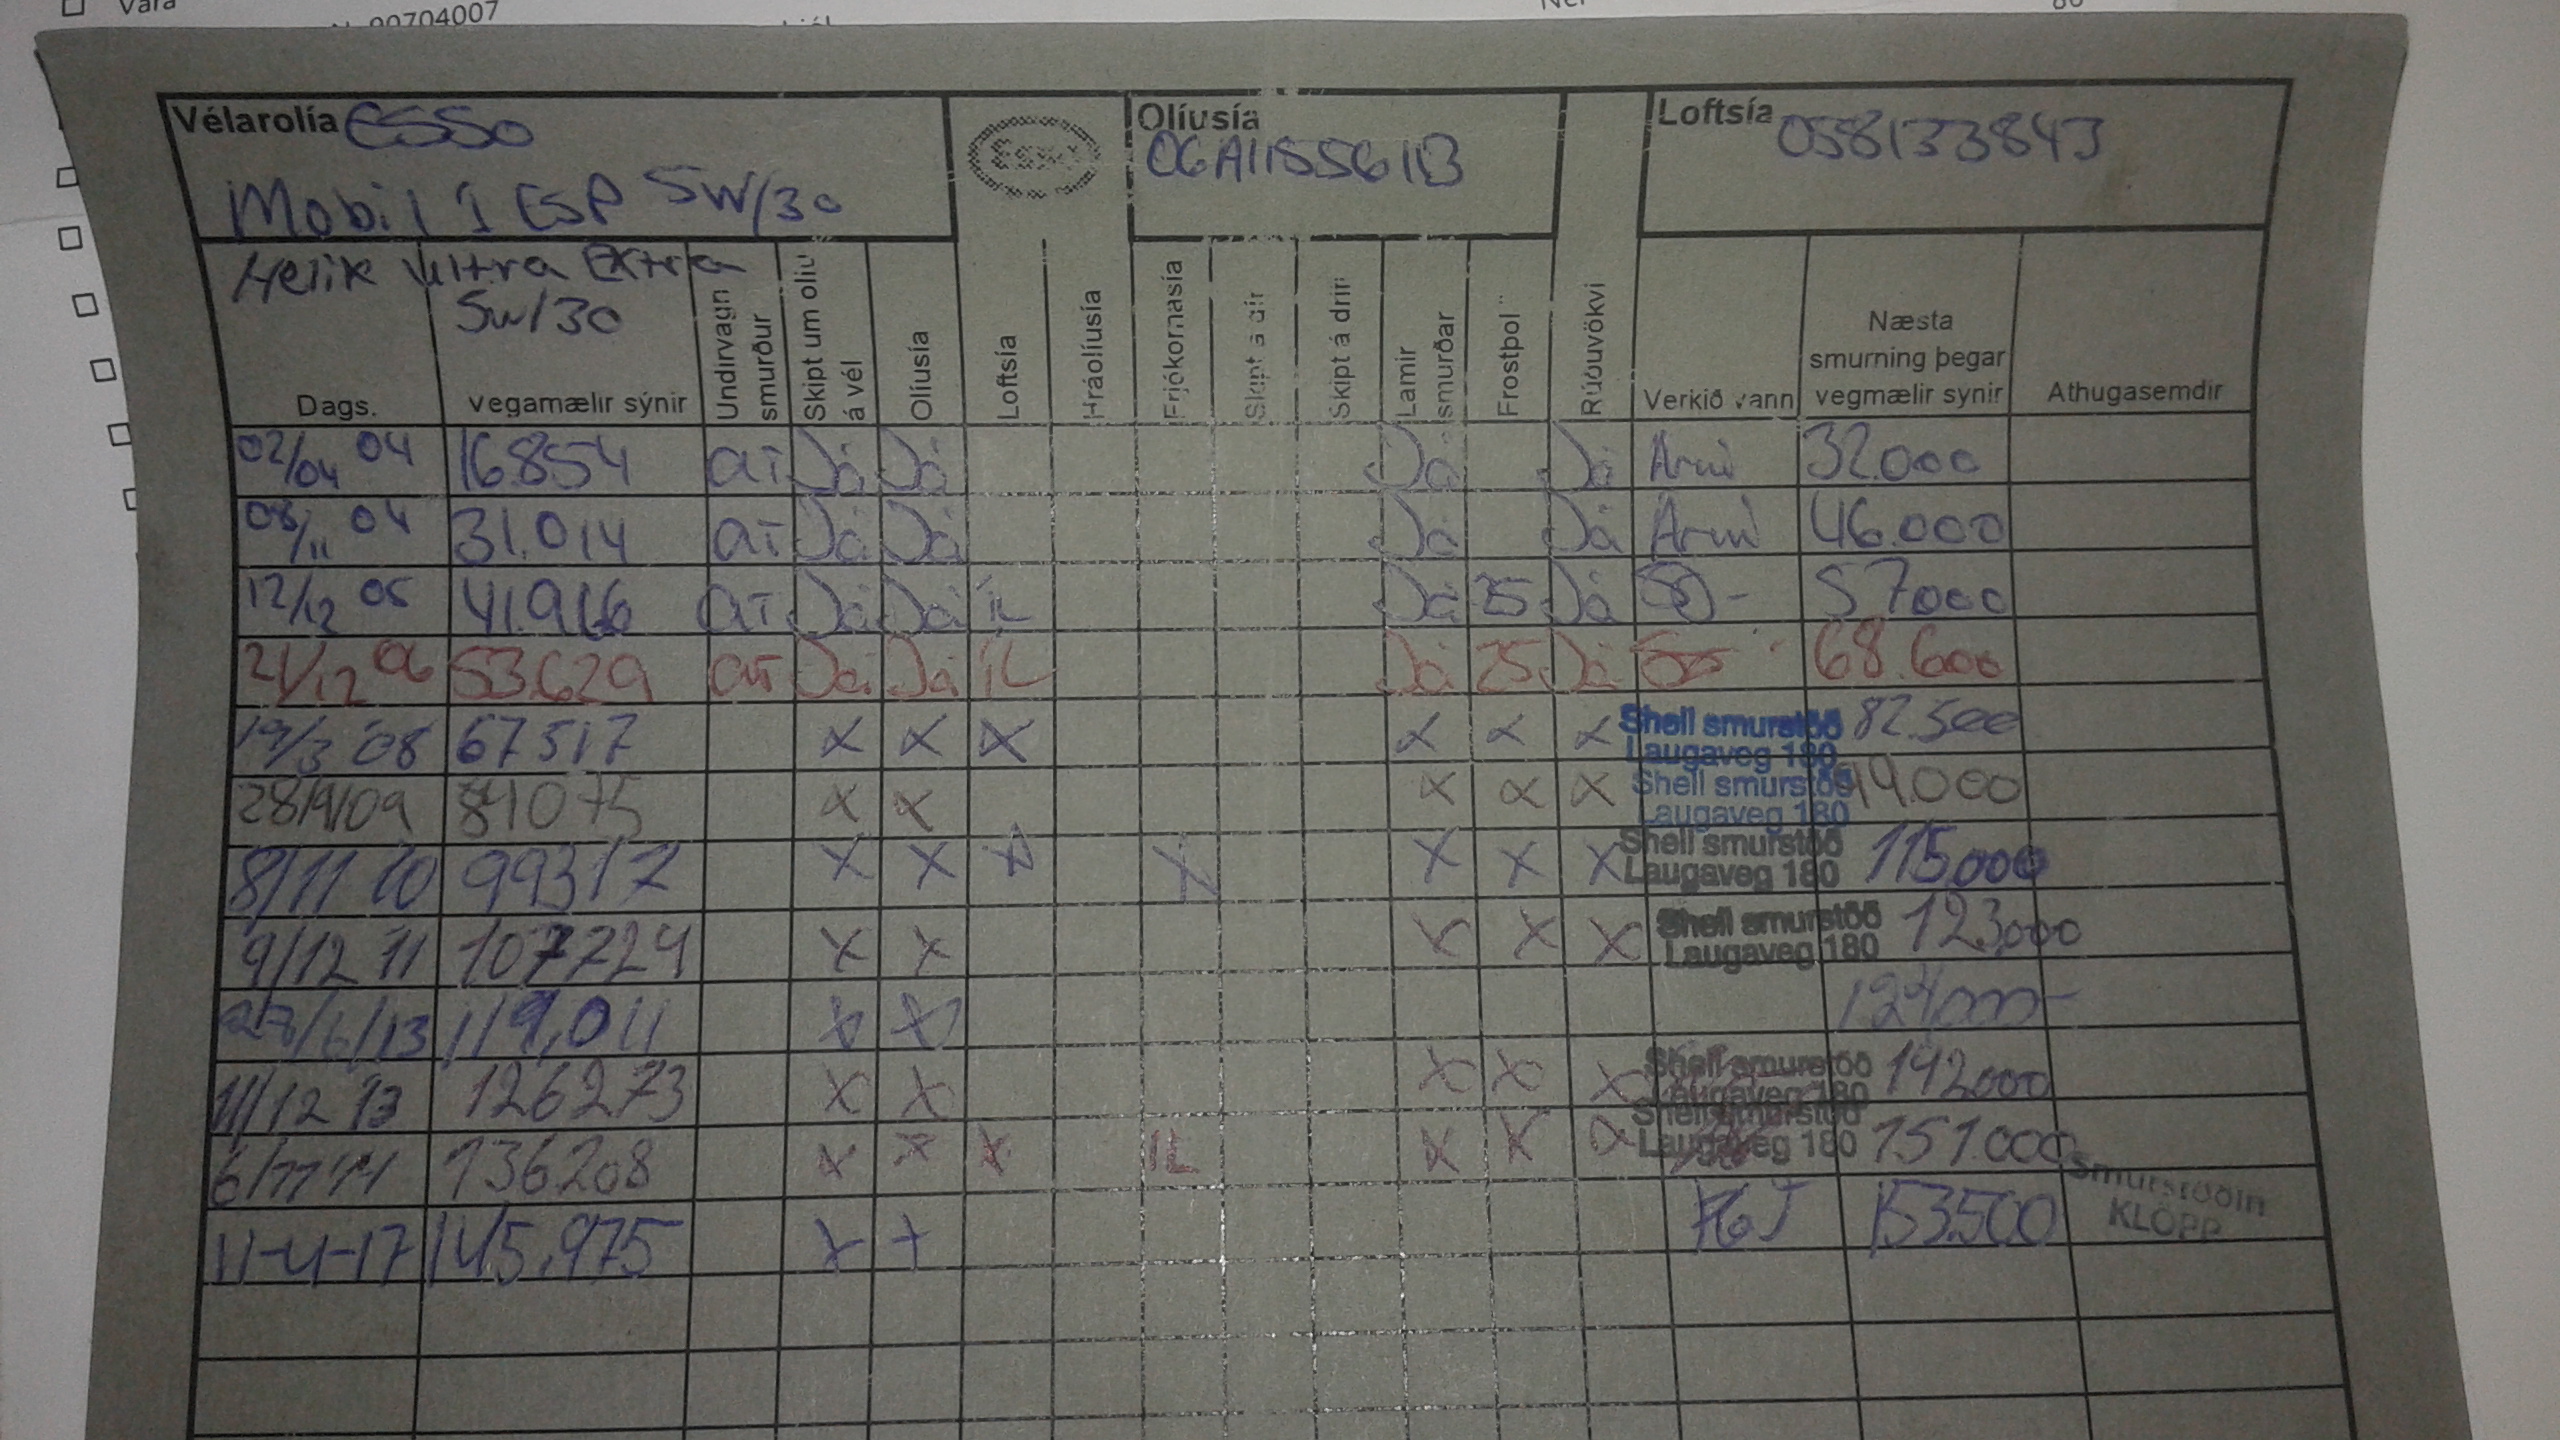 Vara
00704007
Vélarolía Esso
Mobil 1 ESP 5W/30
Esso
Olíusía
06A115561B
Loftsía 058133843
Helix Ultra Extra
5W/30
Dags.
Vegamælir sýnir
Undirvagn smurður
Skipt um olíu á vél
Olíusía
Loftsía
Hráolíusía
Frjókornasía
Skipt á drif
Skipt á drif
Lamir smurðar
Frostþol
Rúðuvökvi
Verkið vann
Næsta smurning þegar vegmælir sýnir
Athugasemdir
02/04 04 16.854 aï Já Já Já Já Árni 32.000
08/11 04 31.014 aï Já Já Já Já Árni 46.000
12/12 05 41.966 aï Já Já ÍL Já 25 Já 57000
21/12 06 53.629 aï Já Já ÍL Já 25 Já 68.600
19/3 '08 67517 x x x x x x Shell smurstöð Laugaveg 180 82.500
28/9/09 84075 x x x x x Shell smurstöð Laugaveg 180 99.000
8/11 10 99317 x x x x x x x Shell smurstöð Laugaveg 180 115,000
9/12 11 107724 x x x x x Shell smurstöð Laugaveg 180 123,000
/6/13 119,011 x x
11/12 13 126273 x x x x x Shell smurstöð Laugaveg 180 142000
6/11 14 136208 x x x IL x x x Shell smurstöð Laugaveg 180 151.000
11-4-17 145,975 x + 153500 Smurstöðin KLÖPP